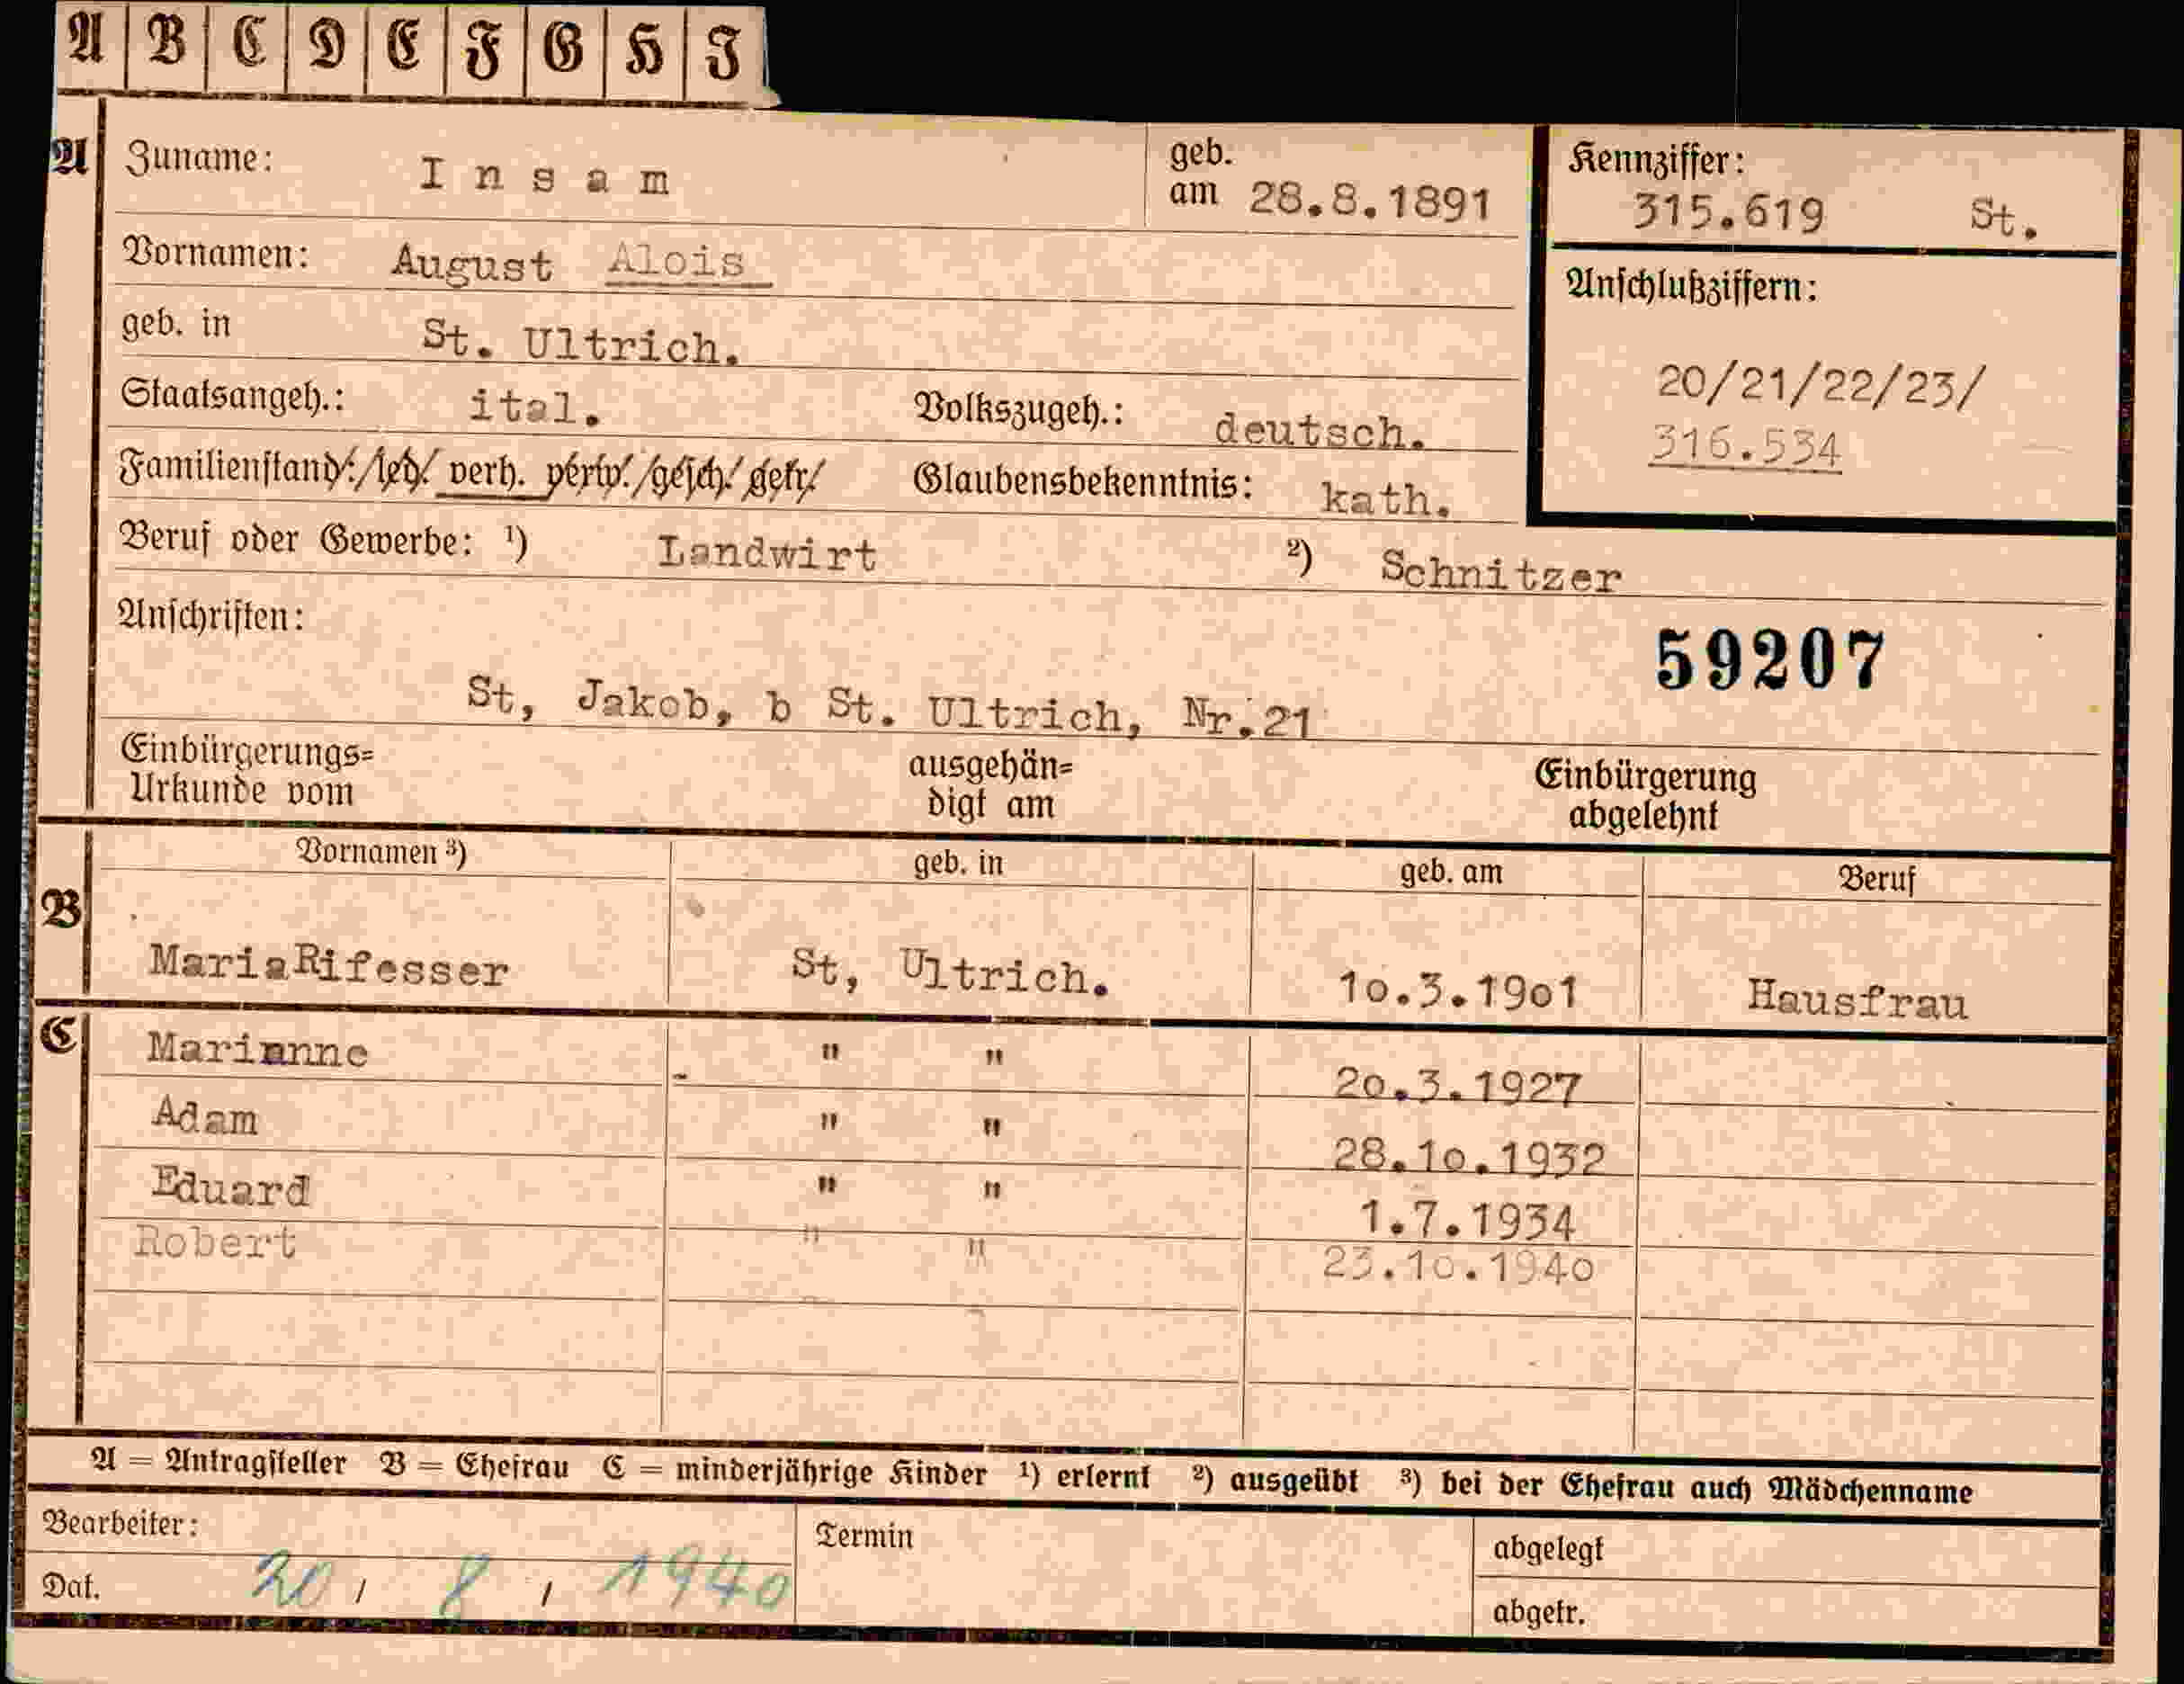 A B C D E F G H J
A Zuname: Insam geb. am 28.8.1891 Kennziffer: 315.619 St.
Vornamen: August Alois
Anschlußziffern:
geb. in St. Ultrich.
20/21/22/23/
Staatsangeh.: ital. Volkszugeh.: deutsch.
316.534
Familienstand: led. verh. verw. gesch. getr. Glaubensbekenntnis: kath.
Beruf oder Gewerbe: ¹) Landwirt ²) Schnitzer
Anschriften:
59207
St, Jakob, b St. Ultrich, Nr.21
Einbürgerungs=
Urkunde vom
ausgehän=
digt am
Einbürgerung
abgelehnt
Vornamen ³) geb. in geb. am Beruf
B MariaRifesser St, Ultrich. 10.3.1901 Hausfrau
C Marianne " " 20.3.1927
Adam " " 28.10.1932
Eduard " " 1.7.1934
Robert " " 23.10.1940
A = Antragsteller B = Ehefrau C = minderjährige Kinder ¹) erlernt ²) ausgeübt ³) bei der Ehefrau auch Mädchenname
Bearbeiter: Termin abgelegt
Dat. 20 / 8 / 1940 abgetr.